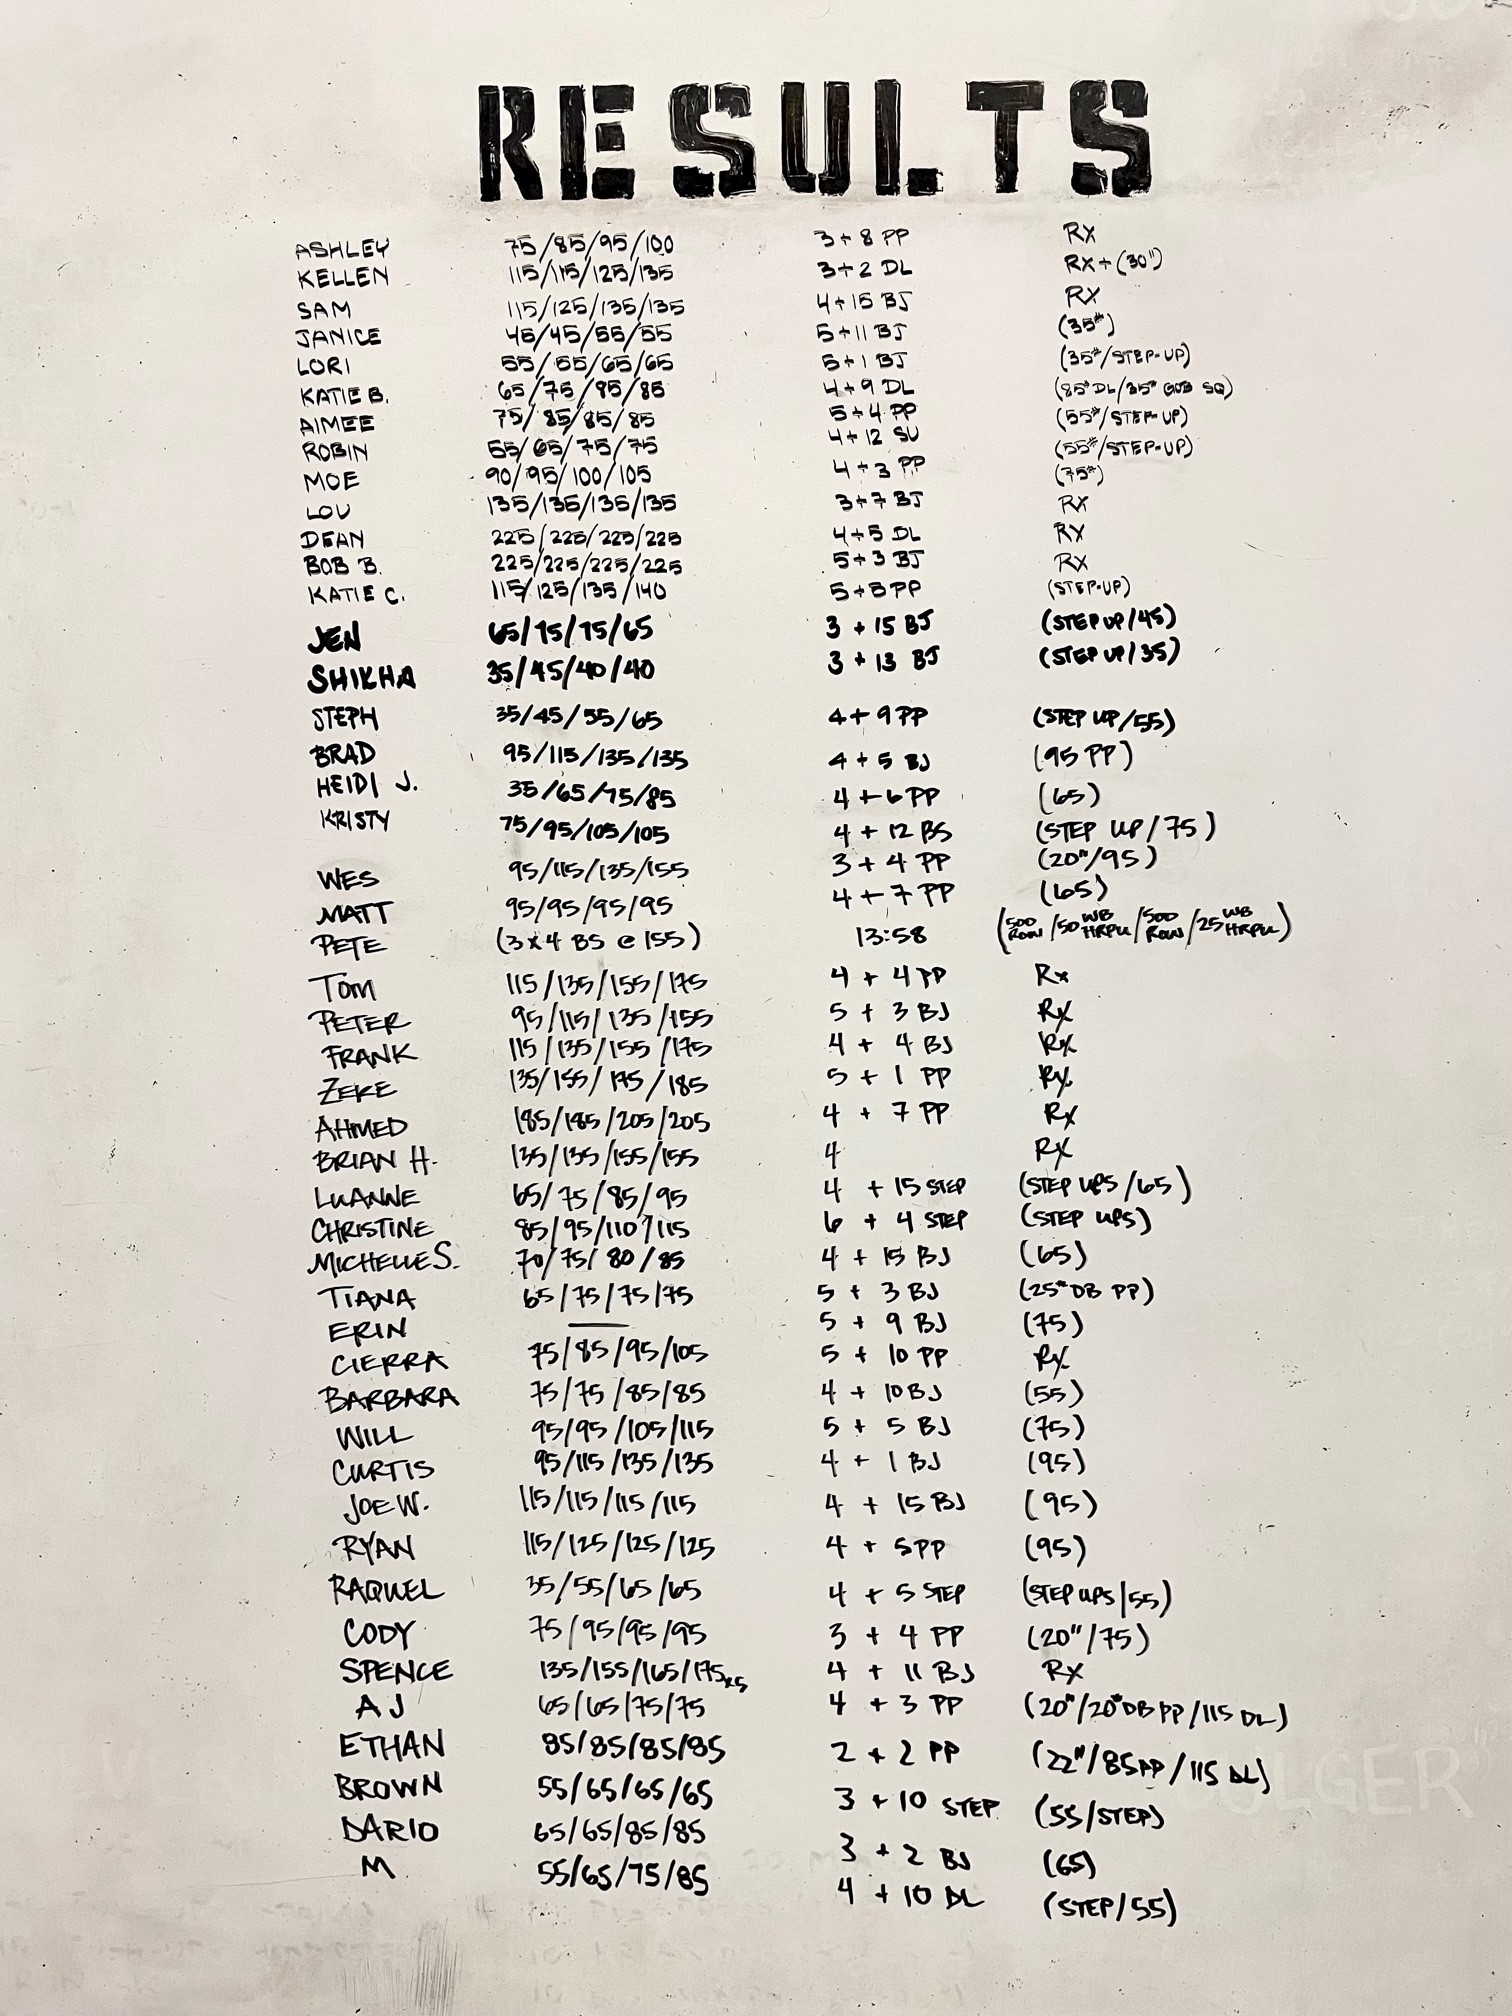 RESULTS
ASHLEY 75/85/95/100 3+8 PP RX
KELLEN 115/115/125/135 3+2 DL RX+(30")
SAM 115/125/135/135 4+15 BJ RX
JANICE 45/45/55/55 5+11 BJ (35#)
LORI 55/55/65/65 5+1 BJ (35#/STEP-UP)
KATIE B. 65/75/85/85 4+9 DL (85# DL/35# GOB SQ)
AIMEE 75/85/85/85 5+4 PP (55#/STEP-UP)
ROBIN 55/65/75/75 4+12 SU (55#/STEP-UP)
MOE 90/95/100/105 4+3 PP (75#)
LOU 135/135/135/135 3+7 BJ RX
DEAN 225/225/225/225 4+5 DL RX
BOB B. 225/225/225/225 5+3 BJ RX
KATIE C. 115/125/135/140 5+8 PP (STEP-UP)
JEN 65/75/75/65 3 + 15 BJ (STEP UP/45)
SHIKHA 35/45/40/40 3 + 13 BJ (STEP UP/35)
STEPH 35/45/55/65 4+9 PP (STEP UP/55)
BRAD 95/115/135/135 4 + 5 BJ (95 PP)
HEIDI J. 35/65/75/85 4 + 6 PP (65)
KRISTY 75/95/105/105 4 + 12 BS (STEP UP/75)
WES 95/115/135/155 3 + 4 PP (20"/95)
MATT 95/95/95/95 4 + 7 PP (65)
PETE (3x4 BS @ 155) 13:58 (500 ROW/50 WB HRPU/500 ROW/25 WB HRPU)
TOM 115/135/155/175 4 + 4 PP Rx
PETER 95/115/135/155 5 + 3 BJ Rx
FRANK 115/135/155/175 4 + 4 BJ Rx
ZEKE 135/155/175/185 5 + 1 PP Rx
AHMED 185/185/205/205 4 + 7 PP Rx
BRIAN H. 135/135/155/155 4 Rx
LUANNE 65/75/85/95 4 + 15 STEP (STEP UPS/65)
CHRISTINE 85/95/110/115 6 + 4 STEP (STEP UPS)
MICHELLE S. 70/75/80/85 4 + 15 BJ (65)
TIANA 65/75/75/75 5 + 3 BJ (25# DB PP)
ERIN — 5 + 9 BJ (75)
CIERRA 75/85/95/105 5 + 10 PP Rx
BARBARA 75/75/85/85 4 + 10 BJ (55)
WILL 95/95/105/115 5 + 5 BJ (75)
CURTIS 95/115/135/135 4 + 1 BJ (95)
JOE W. 115/115/115/115 4 + 15 BJ (95)
RYAN 115/125/125/125 4 + 5 PP (95)
RAQUEL 35/55/65/65 4 + 5 STEP (STEP UPS/55)
CODY 75/95/95/95 3 + 4 PP (20"/75)
SPENCE 135/155/165/175x5 4 + 11 BJ Rx
AJ 65/65/75/75 4 + 3 PP (20"/20# DB PP/115 DL)
ETHAN 85/85/85/85 2 + 2 PP (22"/85PP/115 DL)
BROWN 55/65/65/65 3 + 10 STEP (55/STEP)
DARIO 65/65/85/85 3 + 2 BJ (65)
M 55/65/75/85 4 + 10 DL (STEP/55)